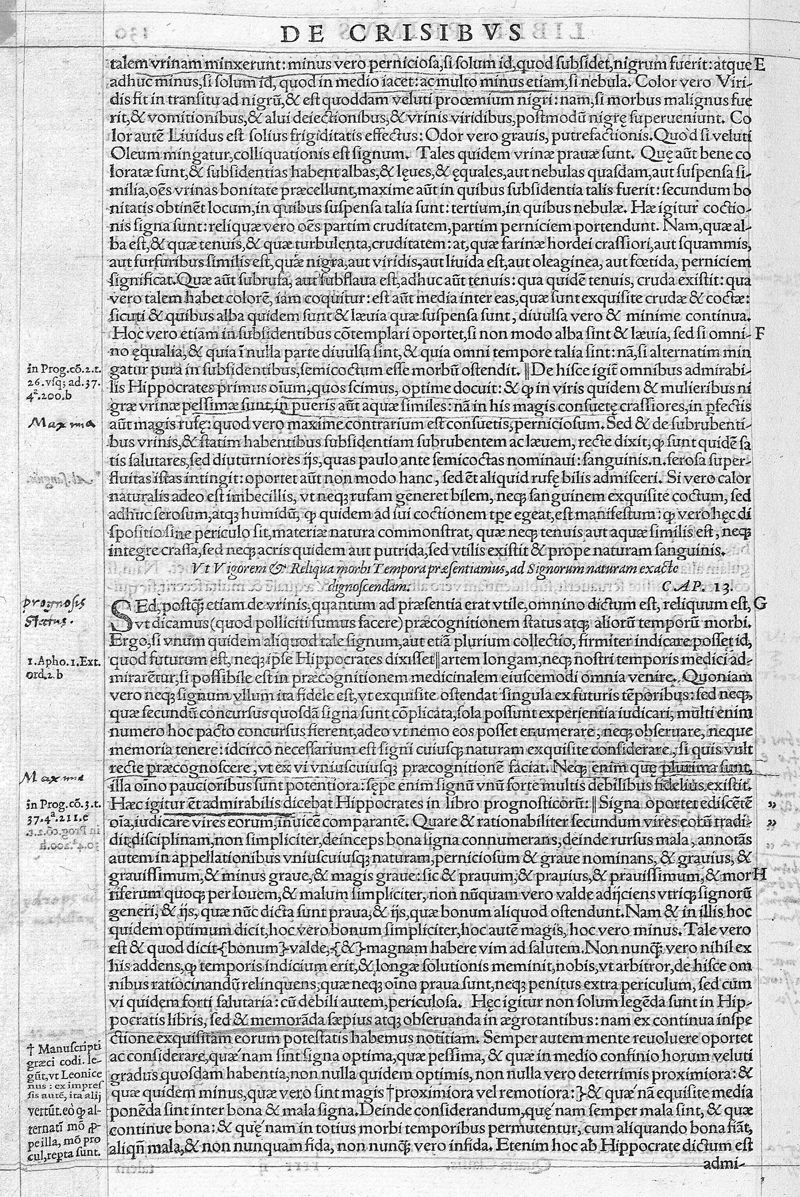 DE CRISIBVS
talem vrinam minxerunt: minus vero perniciosa, si solum id, quod subsidet, nigrum fuerit: atque E
adhuc minus, si solum id, quod in medio iacet: ac multo minus etiam, si nebula. Color vero Viri-
dis fit in transitu ad nigrũ, & est quoddam veluti proœmium nigri: nam, si morbus malignus fue
rit, & vomitionibus, & alui deiectionibus, & vrinis viridibus, postmodũ nigrę superueniunt. Co
lor autẽ Liuidus est solius frigiditatis effectus: Odor vero grauis, putrefactionis. Quod si veluti
Oleum mingatur, colliquationis est signum. Tales quidem vrinæ prauæ sunt. Quę aũt bene co
loratæ sunt, & subsidentias habent albas, & lęues, & ęquales, aut nebulas quasdam, aut suspensa si-
milia, oẽs vrinas bonitate præcellunt, maxime aũt in quibus subsidentia talis fuerit: secundum bo
nitatis obtinẽt locum, in quibus suspensa talia sunt: tertium, in quibus nebulæ. Hæ igitur coctio-
nis signa sunt: reliquæ vero oẽs partim cruditatem, partim perniciem portendunt. Nam, quæ al-
ba est, & quæ tenuis, & quæ turbulenta, cruditatem: at, quæ farinæ hordei crassiori, aut squammis,
aut furfuribus similis est, quæ nigra, aut viridis, aut liuida est, aut oleaginea, aut fœtida, perniciem
significat. Quæ aũt subrufa, aut subflaua est, adhuc aũt tenuis: qua quidẽ tenuis, cruda existit: qua
vero talem habet colorẽ, iam coquitur: est aũt media inter eas, quæ sunt exquisite crudæ & coctæ:
sicuti & quibus alba quidem sunt & læuia quæ suspensa sunt, diuulsa vero & minime continua.
Hoc vero etiam in subsidentibus cõtemplari oportet, si non modo alba sint & læuia, sed si omni- F
no ęqualia, & quia ĩ nulla parte diuulsa sint, & quia omni tempore talia sint: nã, si alternatim min
gatur pura in subsidentibus, semicoctum esse morbũ ostendit. ‖De hisce igit̃ omnibus admirabi-
lis Hippocrates primus oĩum, quos scimus, optime docuit: & ꝙ in viris quidem & mulieribus ni
græ vrinæ pessimæ sunt, in pueris aũt aquæ similes: nã in his magis consuetę crassiores, in ꝑfectis
aũt magis rufę: quod vero maxime contrarium est consuetis, perniciosum. Sed & de subrubenti-
bus vrinis, & statim habentibus subsidentiam subrubentem ac læuem, recte dixit, ꝙ sunt quidẽ sa
tis salutares, sed diuturniores ijs, quas paulo ante semicoctas nominaui: sanguinis .n. serosa super-
fluitas istas intingit: oportet aũt non modo hanc, sed ẽt aliquid rufę bilis admisceri. Si vero calor
naturalis adeo est imbecillis, vt neqꝫ rufam generet bilem, neqꝫ sanguinem exquisite coctum, sed
adhuc serosum, atqꝫ humidũ, ꝙ quidem ad sui coctionem tꝑe egeat, est manifestum: ꝙ vero hęc di
spositio sine periculo sit, materiæ natura commonstrat, quæ neqꝫ tenuis aut aquæ similis est, neqꝫ
integre crassa, sed neqꝫ acris quidem aut putrida, sed vtilis existit & prope naturam sanguinis.
Vt Vigorem & Reliqua morbi Tempora præsentiamus, ad Signorum naturam exacte
dignoscendam. CAP. 13.
SEd, postꝗ̃ etiam de vrinis, quantum ad præsentia erat vtile, omnino dictum est, reliquum est, G
vt dicamus (quod polliciti sumus facere) præcognitionem status atqꝫ aliorũ temporũ morbi.
Ergo, si vnum quidem aliquod tale signum, aut etiã plurium collectio, firmiter indicare posset id,
quod futurum est, neqꝫ ipse Hippocrates dixisset ‖artem longam, neqꝫ nostri temporis medici ad-
mirarẽtur, si possibile est in præcognitionem medicinalem eiuscemodi omnia venire. Quoniam
vero neqꝫ signum vllum ita fidele est, vt exquisite ostendat singula ex futuris tẽporibus: sed neqꝫ,
quæ secundũ concursus quosdã signa sunt cõplicata, sola possunt experientia iudicari, multi enim
numero hoc pacto concursus fierent, adeo vt nemo eos posset enumerare, neqꝫ obseruare, neque
memoria tenere: idcirco necessarium est signi cuiusqꝫ naturam exquisite considerare, si quis vult
recte præcognoscere, vt ex vi vniuscuiusqꝫ præcognitionẽ faciat. Neqꝫ enim quę plurima sunt,
illa oĩno paucioribus sunt potentiora: sępe enim signũ vnũ forte multis debilibus fidelius existit.
Hæc igitur ẽt admirabilis dicebat Hippocrates in libro prognosticorũ: ‖Signa oportet ediscẽtẽ „
oĩa, iudicare vires eorum, inuicẽ comparantẽ. Quare & rationabiliter secundum vires eorũ tradi- „
dit disciplinam, non simpliciter, deinceps bona signa connumerans, deinde rursus mala, annotãs
autem in appellationibus vniuscuiusqꝫ naturam, perniciosum & graue nominans, & grauius, &
grauissimum, & minus graue, & magis graue: sic & prauum, & prauius, & prauissimum, & mor H
tiferum quoqꝫ per Iouem, & malum simpliciter, non nũquam vero valde adijciens vtriqꝫ signorũ
generi, & ijs, quæ nũc dicta sunt praua, & ijs, quæ bonum aliquod ostendunt. Nam & in illis hoc
quidem optimum dicit, hoc vero bonum simpliciter, hoc autẽ magis, hoc vero minus. Tale vero
est & quod dicit {bonum} valde, {&} magnam habere vim ad salutem. Non nunꝗ̃ vero nihil ex
his addens, ꝙ temporis indicium erit, & longæ solutionis meminit, nobis, vt arbitror, de hisce om
nibus ratiocinandũ relinquens, quæ neqꝫ oĩno praua sunt, neqꝫ penitus extra periculum, sed cum
vi quidem forti salutaria: cũ debili autem, periculosa. Hęc igitur non solum legẽda sunt in Hip-
pocratis libris, sed & memorãda sæpius atqꝫ obseruanda in ægrotantibus: nam ex continua inspe
ctione exquisitam eorum potestatis habemus notitiam. Semper autem mente reuoluere oportet
ac considerare, quæ nam sint signa optima, quæ pessima, & quæ in medio confinio horum veluti
gradus quosdam habentia, non nulla quidem optimis, non nulla vero deterrimis proximiora: &
quæ quidem minus, quæ vero sint magis †proximiora vel remotiora:} & quæ nã equisite media
ponẽda sint inter bona & mala signa. Deinde considerandum, quę nam semper mala sint, & quæ
continue bona: & quę nam in totius morbi temporibus permutentur, cum aliquando bona fiãt,
aliqñ mala, & non nunquam fida, non nunꝗ̃ vero infida. Etenim hoc ab Hippocrate dictum est
admi-
in Prog.cõ.2.t.
26.vsqꝫ ad.37.
4ª.200.b
Maxima
prognosis
Status.
1.Apho.1.Ext.
ord.2.b
Maxima
in Prog.cõ.3.t.
37.4ª.211.e
† Manuscripti
græci codi. le-
gũt, vt Leonice
nus: ex impres
sis autẽ, ita alij
vertũt. eo ꝙ al-
ternatĩ mõ ꝓ-
pe illa, mõ pro
cul, repta sunt.